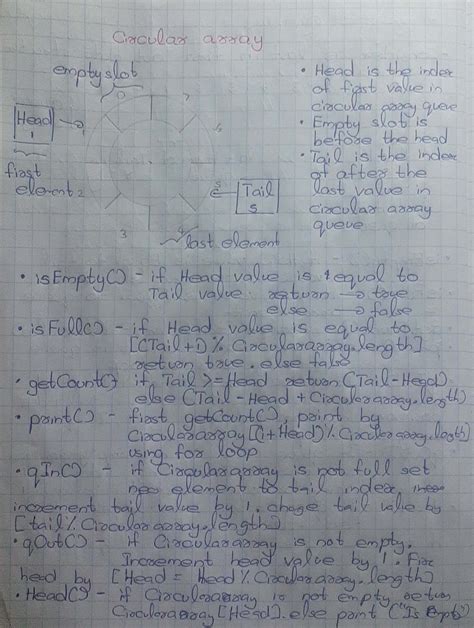 Circular array
empty slot
0
7
6
1
Head
1
first
element
2
3
4
last element
5
Tail
5
• Head is the index
of first value in
circular array queue
• Empty slot is
before the head
• Tail is the index
of after the
last value in
circular array
queue
• isEmpty() - if Head value is equal to
Tail value return → true
else → false
• isFull() - if Head value is equal to
[(Tail+1)% Circulararray.length]
return true. else false
• getCount() if Tail >= Head return (Tail-Head)
else (Tail - Head + Circulararray.length)
• print() - first getCount(), print by
Circulararray[(i+Head)% Circulararray.length]
using for loop
• qIn() - if Circulararray is not full set
new element to tail index,
increment tail value by 1. change tail value by
[tail % Circulararray.length]
• qOut() - if Circulararray is not empty.
Increment head value by 1.
head by [Head = head % Circulararray.length]
• Head() - if Circulararray is not empty return
Circulararray[Head]. else print ("Is Empty")